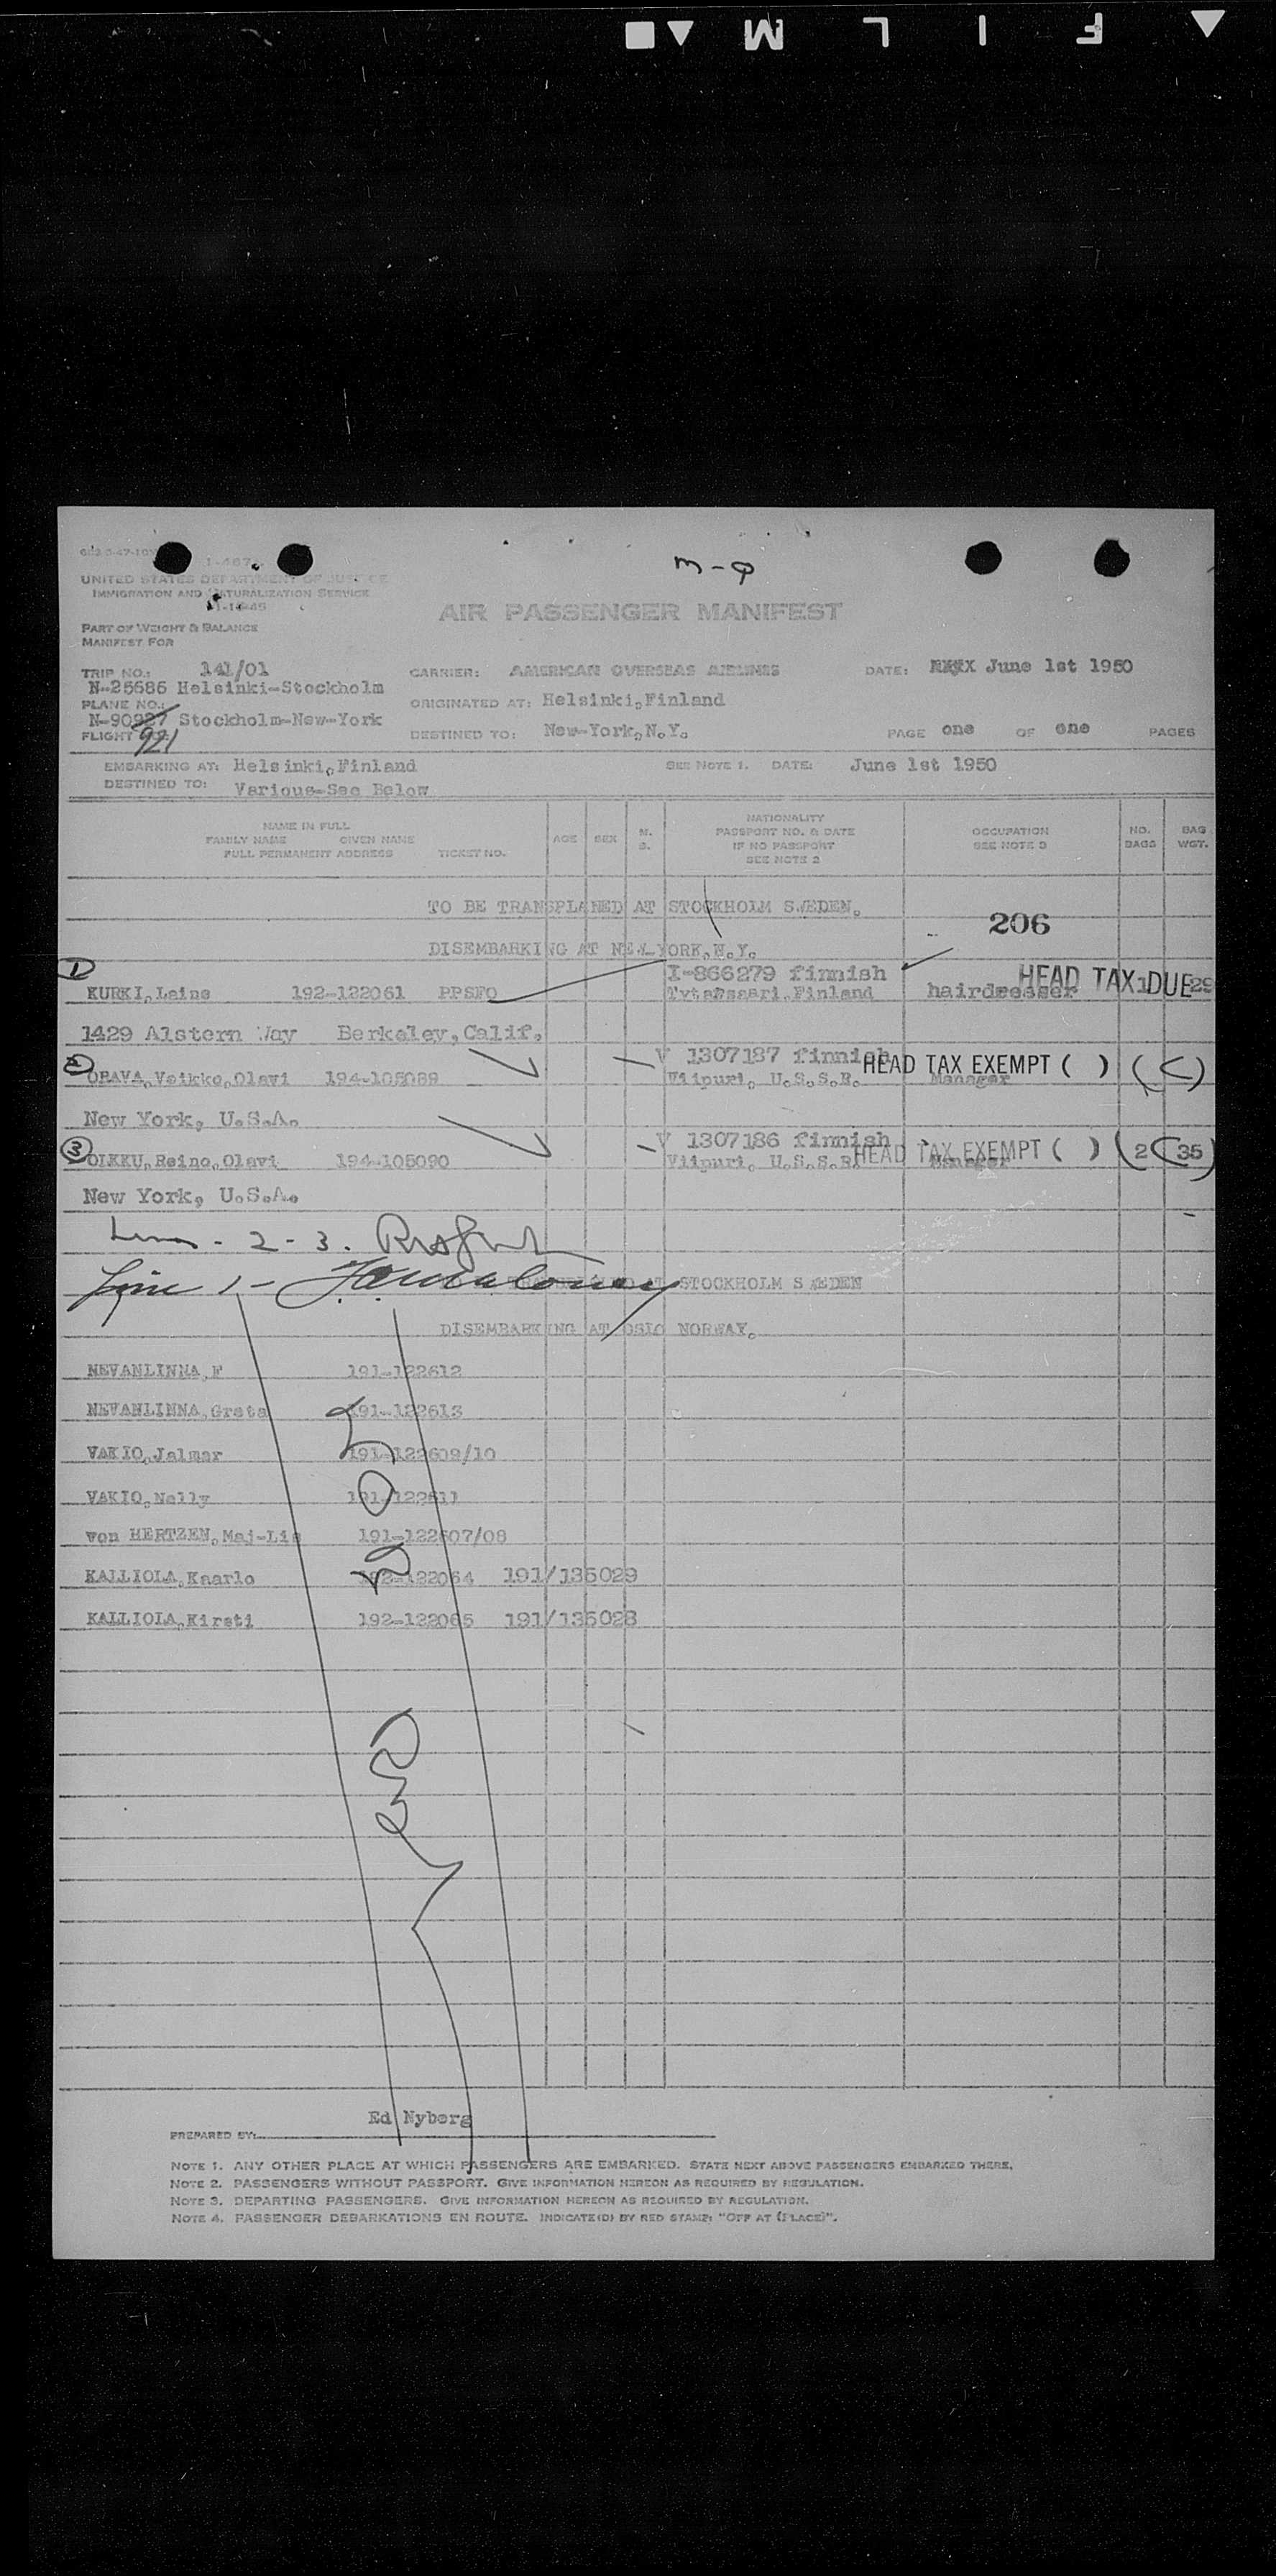 F I L M
m-9
I-467
UNITED STATES DEPARTMENT OF JUSTICE
IMMIGRATION AND NATURALIZATION SERVICE
AIR PASSENGER MANIFEST
PART OF WEIGHT & BALANCE
MANIFEST FOR
TRIP NO.: 141/01 CARRIER: AMERICAN OVERSEAS AIRLINES DATE: June 1st 1950
N-25686 Helsinki-Stockholm
PLANE NO.: ORIGINATED AT: Helsinki,Finland
N-90927 Stockholm-New-York
921
FLIGHT DESTINED TO: New-York,N.Y. PAGE one OF one PAGES
EMBARKING AT: Helsinki,Finland SEE NOTE 1. DATE: June 1st 1950
DESTINED TO: Various-See Below
NAME IN FULL
FAMILY NAME GIVEN NAME
FULL PERMANENT ADDRESS TICKET NO.
AGE SEX M. S.
NATIONALITY
PASSPORT NO. & DATE
IF NO PASSPORT
SEE NOTE 2
OCCUPATION
SEE NOTE 3
NO. BAGS
BAG WGT.
TO BE TRANSPLANED AT STOCKHOLM SWEDEN.
206
DISEMBARKING AT NEW-YORK,N.Y.
1 I-866279 finnish HEAD TAX DUE
KURKI,Laine 192-122061 PPSFO Tytarsaari,Finland hairdresser 1 29
1429 Alstern Way Berkeley,Calif.
2 V 1307187 finnish HEAD TAX EXEMPT ( )
ORAVA,Veikko,Olavi 194-105089 Viipuri, U.S.S.R. Manager
New York, U.S.A.
3 V 1307186 finnish HEAD TAX EXEMPT ( )
OIKKU,Reino,Olavi 194-105090 Viipuri, U.S.S.R. Manager 2 35
New York, U.S.A.
Lines - 2 - 3.
Line 1 - AT STOCKHOLM SWEDEN
DISEMBARKING AT OSLO NORWAY.
NEVANLINNA,F 191-122612
NEVANLINNA,Greta 191-122613
VAKIO,Jalmar 191-122609/10
VAKIO,Nelly 191-122611
von HERTZEN,Maj-Lis 191-122607/08
KALLIOLA,Kaarlo 192-122064 191/135029
KALLIOLA,Kirsti 192-122065 191/135028
Ed Nyberg
PREPARED BY:
NOTE 1. ANY OTHER PLACE AT WHICH PASSENGERS ARE EMBARKED. STATE NEXT ABOVE PASSENGERS EMBARKED THERE.
NOTE 2. PASSENGERS WITHOUT PASSPORT. GIVE INFORMATION HEREON AS REQUIRED BY REGULATION.
NOTE 3. DEPARTING PASSENGERS. GIVE INFORMATION HEREON AS REQUIRED BY REGULATION.
NOTE 4. PASSENGER DEBARKATIONS EN ROUTE. INDICATE(D) BY RED STAMP: "OFF AT (PLACE)".